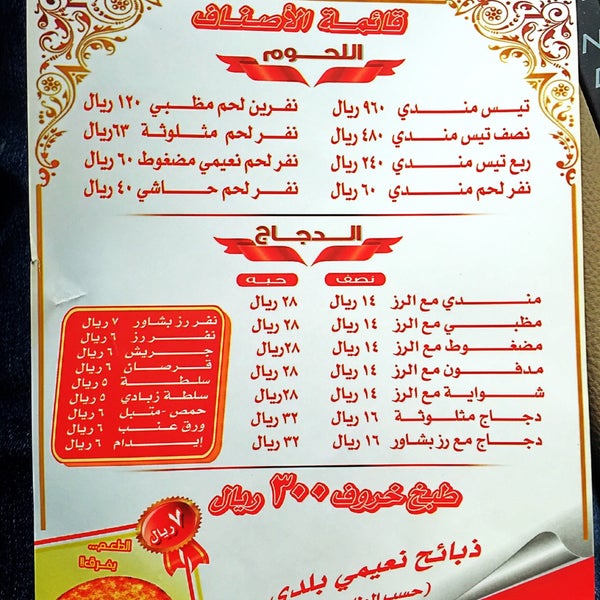 قائمة الأصناف
اللحوم
تيس مندي ٩٦٠ ريال
نصف تيس مندي ٤٨٠ ريال
ربع تيس مندي ٢٤٠ ريال
نفر لحم مندي ٦٠ ريال
نفرين لحم مظبي ١٢٠ ريال
نفر لحم مثلوثة ٦٣ ريال
نفر لحم نعيمي مضغوط ٦٠ ريال
نفر لحم حاشي ٤٠ ريال
الدجاج
نصف حبه
مندي مع الرز ١٤ ريال ٢٨ ريال
مظبي مع الرز ١٤ ريال ٢٨ ريال
مضغوط مع الرز ١٤ ريال ٢٨ ريال
مدفون مع الرز ١٤ ريال ٢٨ ريال
شواية مع الرز ١٤ ريال ٢٨ ريال
دجاج مثلوثة ١٦ ريال ٣٢ ريال
دجاج مع رز بشاور ١٦ ريال ٣٢ ريال
نفر رز بشاور ٧ ريال
نفر رز ٦ ريال
جريش ٦ ريال
قرصان ٦ ريال
سلطة ٥ ريال
سلطة زبادي ٥ ريال
حمص - متبل ٦ ريال
ورق عنب ٦ ريال
إيدام ٦ ريال
طبخ خروف ٣٠٠ ريال
ذبائح نعيمي بلدي
(حسب
٧ ريال
الطعم...
يفرق!!